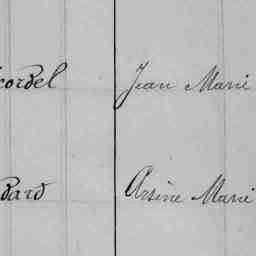 cordel Jean Marie
dard Arsène Marie